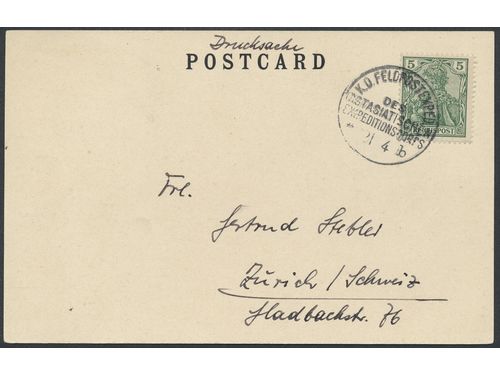 Drucksache
POSTCARD
5 5
K.D. FELDPOSTEXPED
DES
OSTASIATISCHEN
EXPEDITIONSCORPS
* 21 4
Frl.
Gertrud Stebler
Zürich / Schweiz
Hadlbachstr. 76